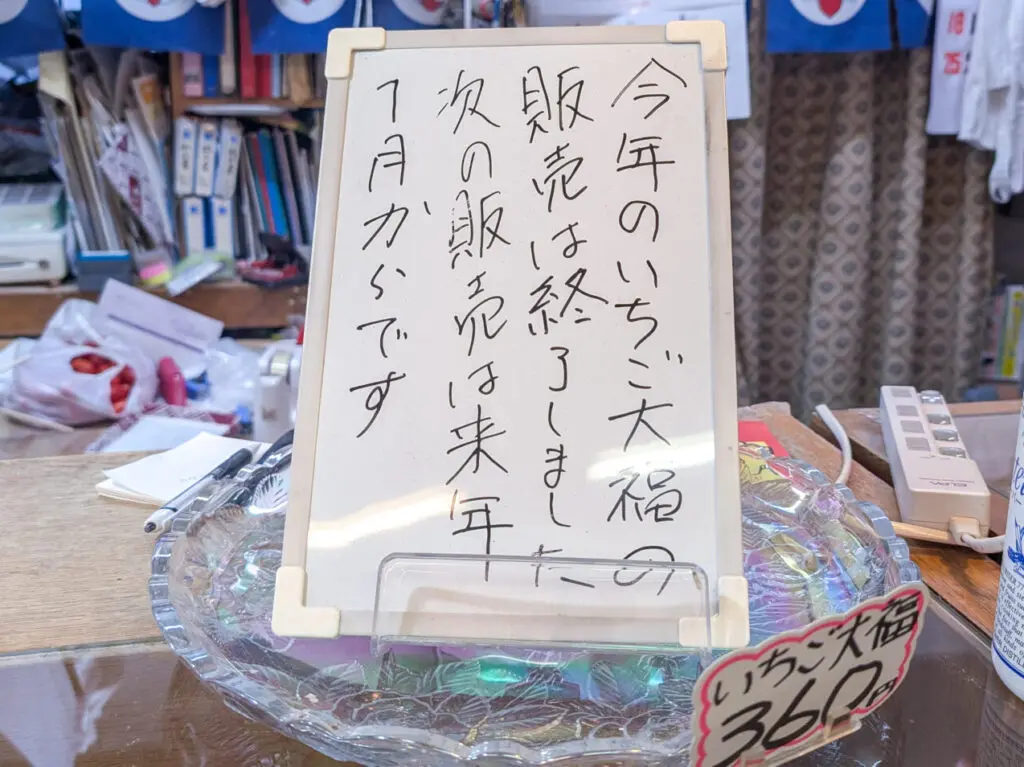 今年のいちご大福の
販売は終了しました
次の販売は来年
1月からです
いちご大福
360円
18
25